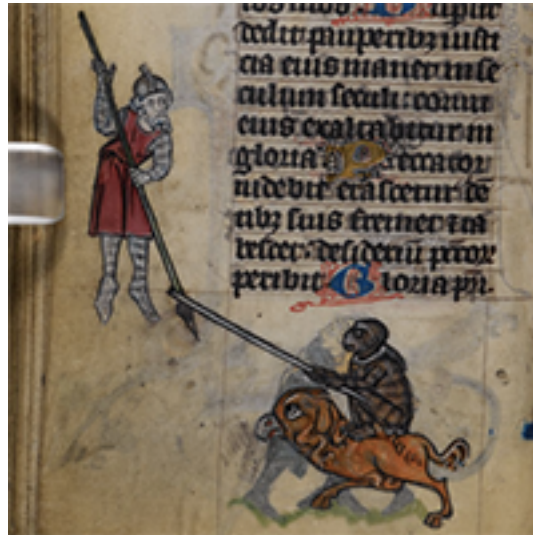 cos suos: Dispersit
dedit pauperibꝫ iusti
cia eius manet in se
culum seculi: cornu
eius exaltabitur in
gloria Peccator
uidebit ⁊ irascetur dē
tibꝫ suis fremet ⁊ ta
bescet: desideriū pccōꝝ
peribit Gloria pri.